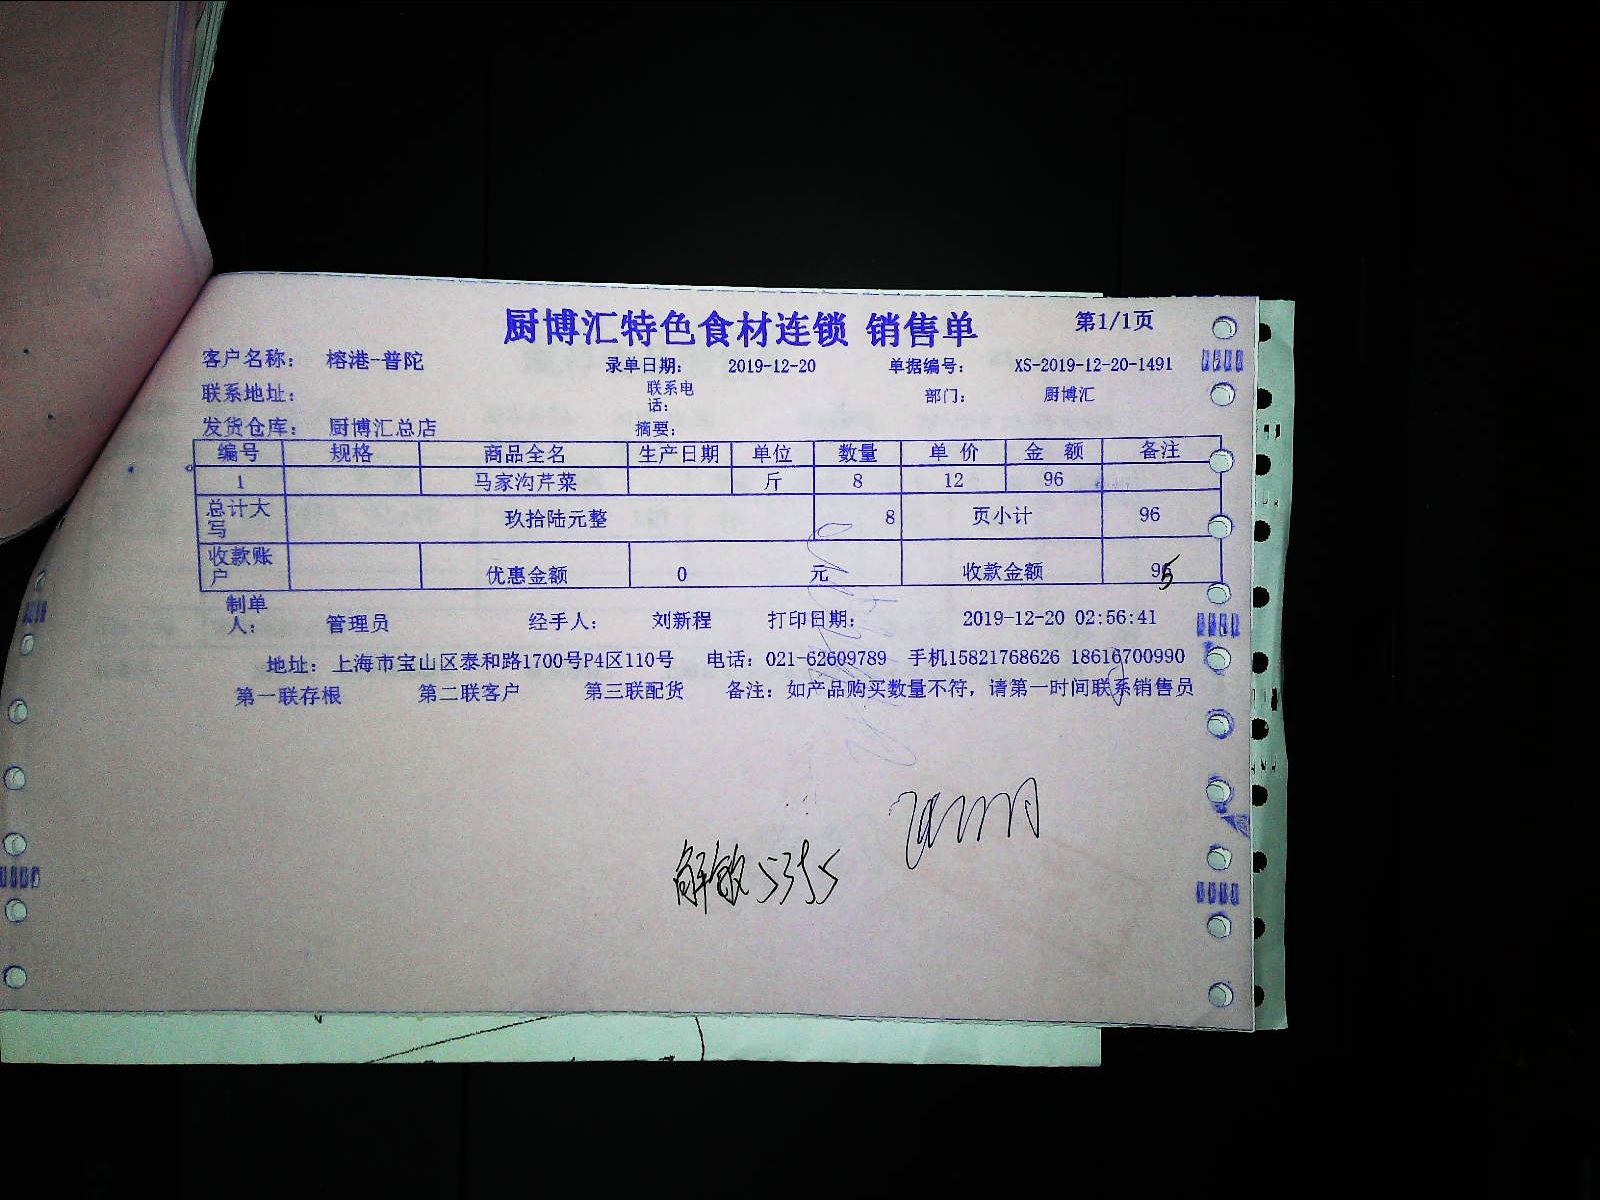 厨博汇特色食材连锁 销售单 第1/1页
客户名称： 榕港-普陀 录单日期： 2019-12-20 单据编号： XS-2019-12-20-1491
联系地址： 联系电话： 部门： 厨博汇
发货仓库： 厨博汇总店 摘要：
编号 规格 商品全名 生产日期 单位 数量 单价 金额 备注
1 马家沟芹菜 斤 8 12 96
总计大写 玖拾陆元整 8 页小计 96
收款账户 优惠金额 0 元 收款金额
制单人： 管理员 经手人： 刘新程 打印日期： 2019-12-20 02:56:41
地址：上海市宝山区泰和路1700号P4区110号 电话：021-62609789 手机15821768626 18616700990
第一联存根 第二联客户 第三联配货 备注：如产品购买数量不符，请第一时间联系销售员